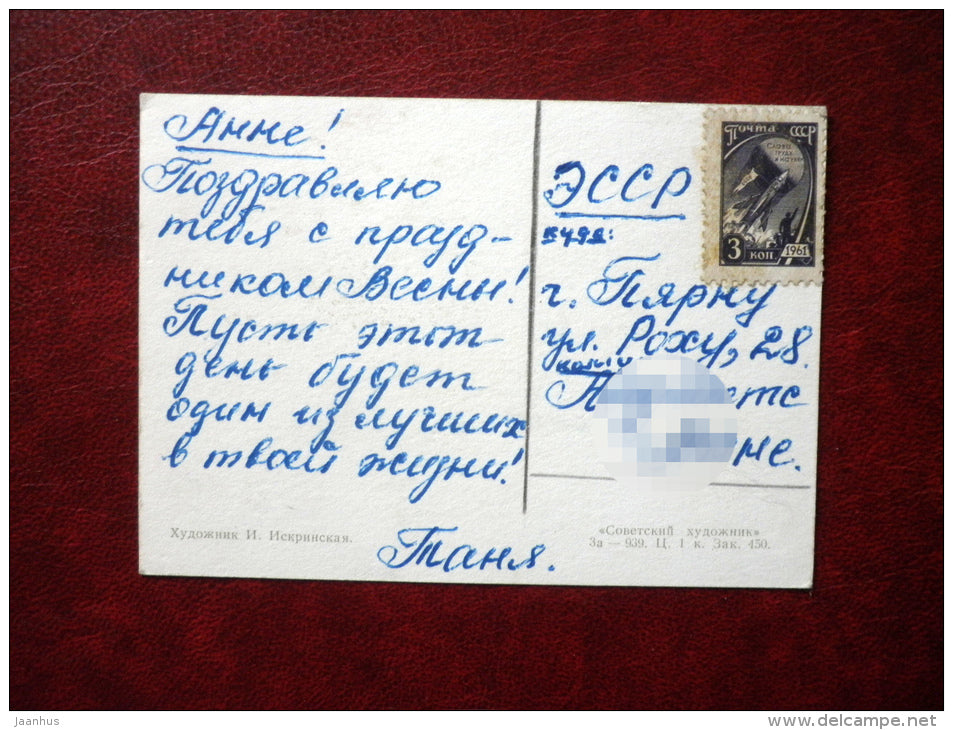 Анне!
Поздравляю
тебя с празд-
ником Весны!
Пусть этот
день будет
один из лучших
в твоей жизни!
Таня.
Художник И. Искринская.
Почта СССР
СЛАВА
ТРУДА
И НАУКИ
3 КОП. 1961
ЭССР
куда:
г. Пярну
ул. Роху, 28.
кому
«Советский художник»
За — 939. Ц. 1 к. Зак. 450.
jaanhus
www.delcampe.net